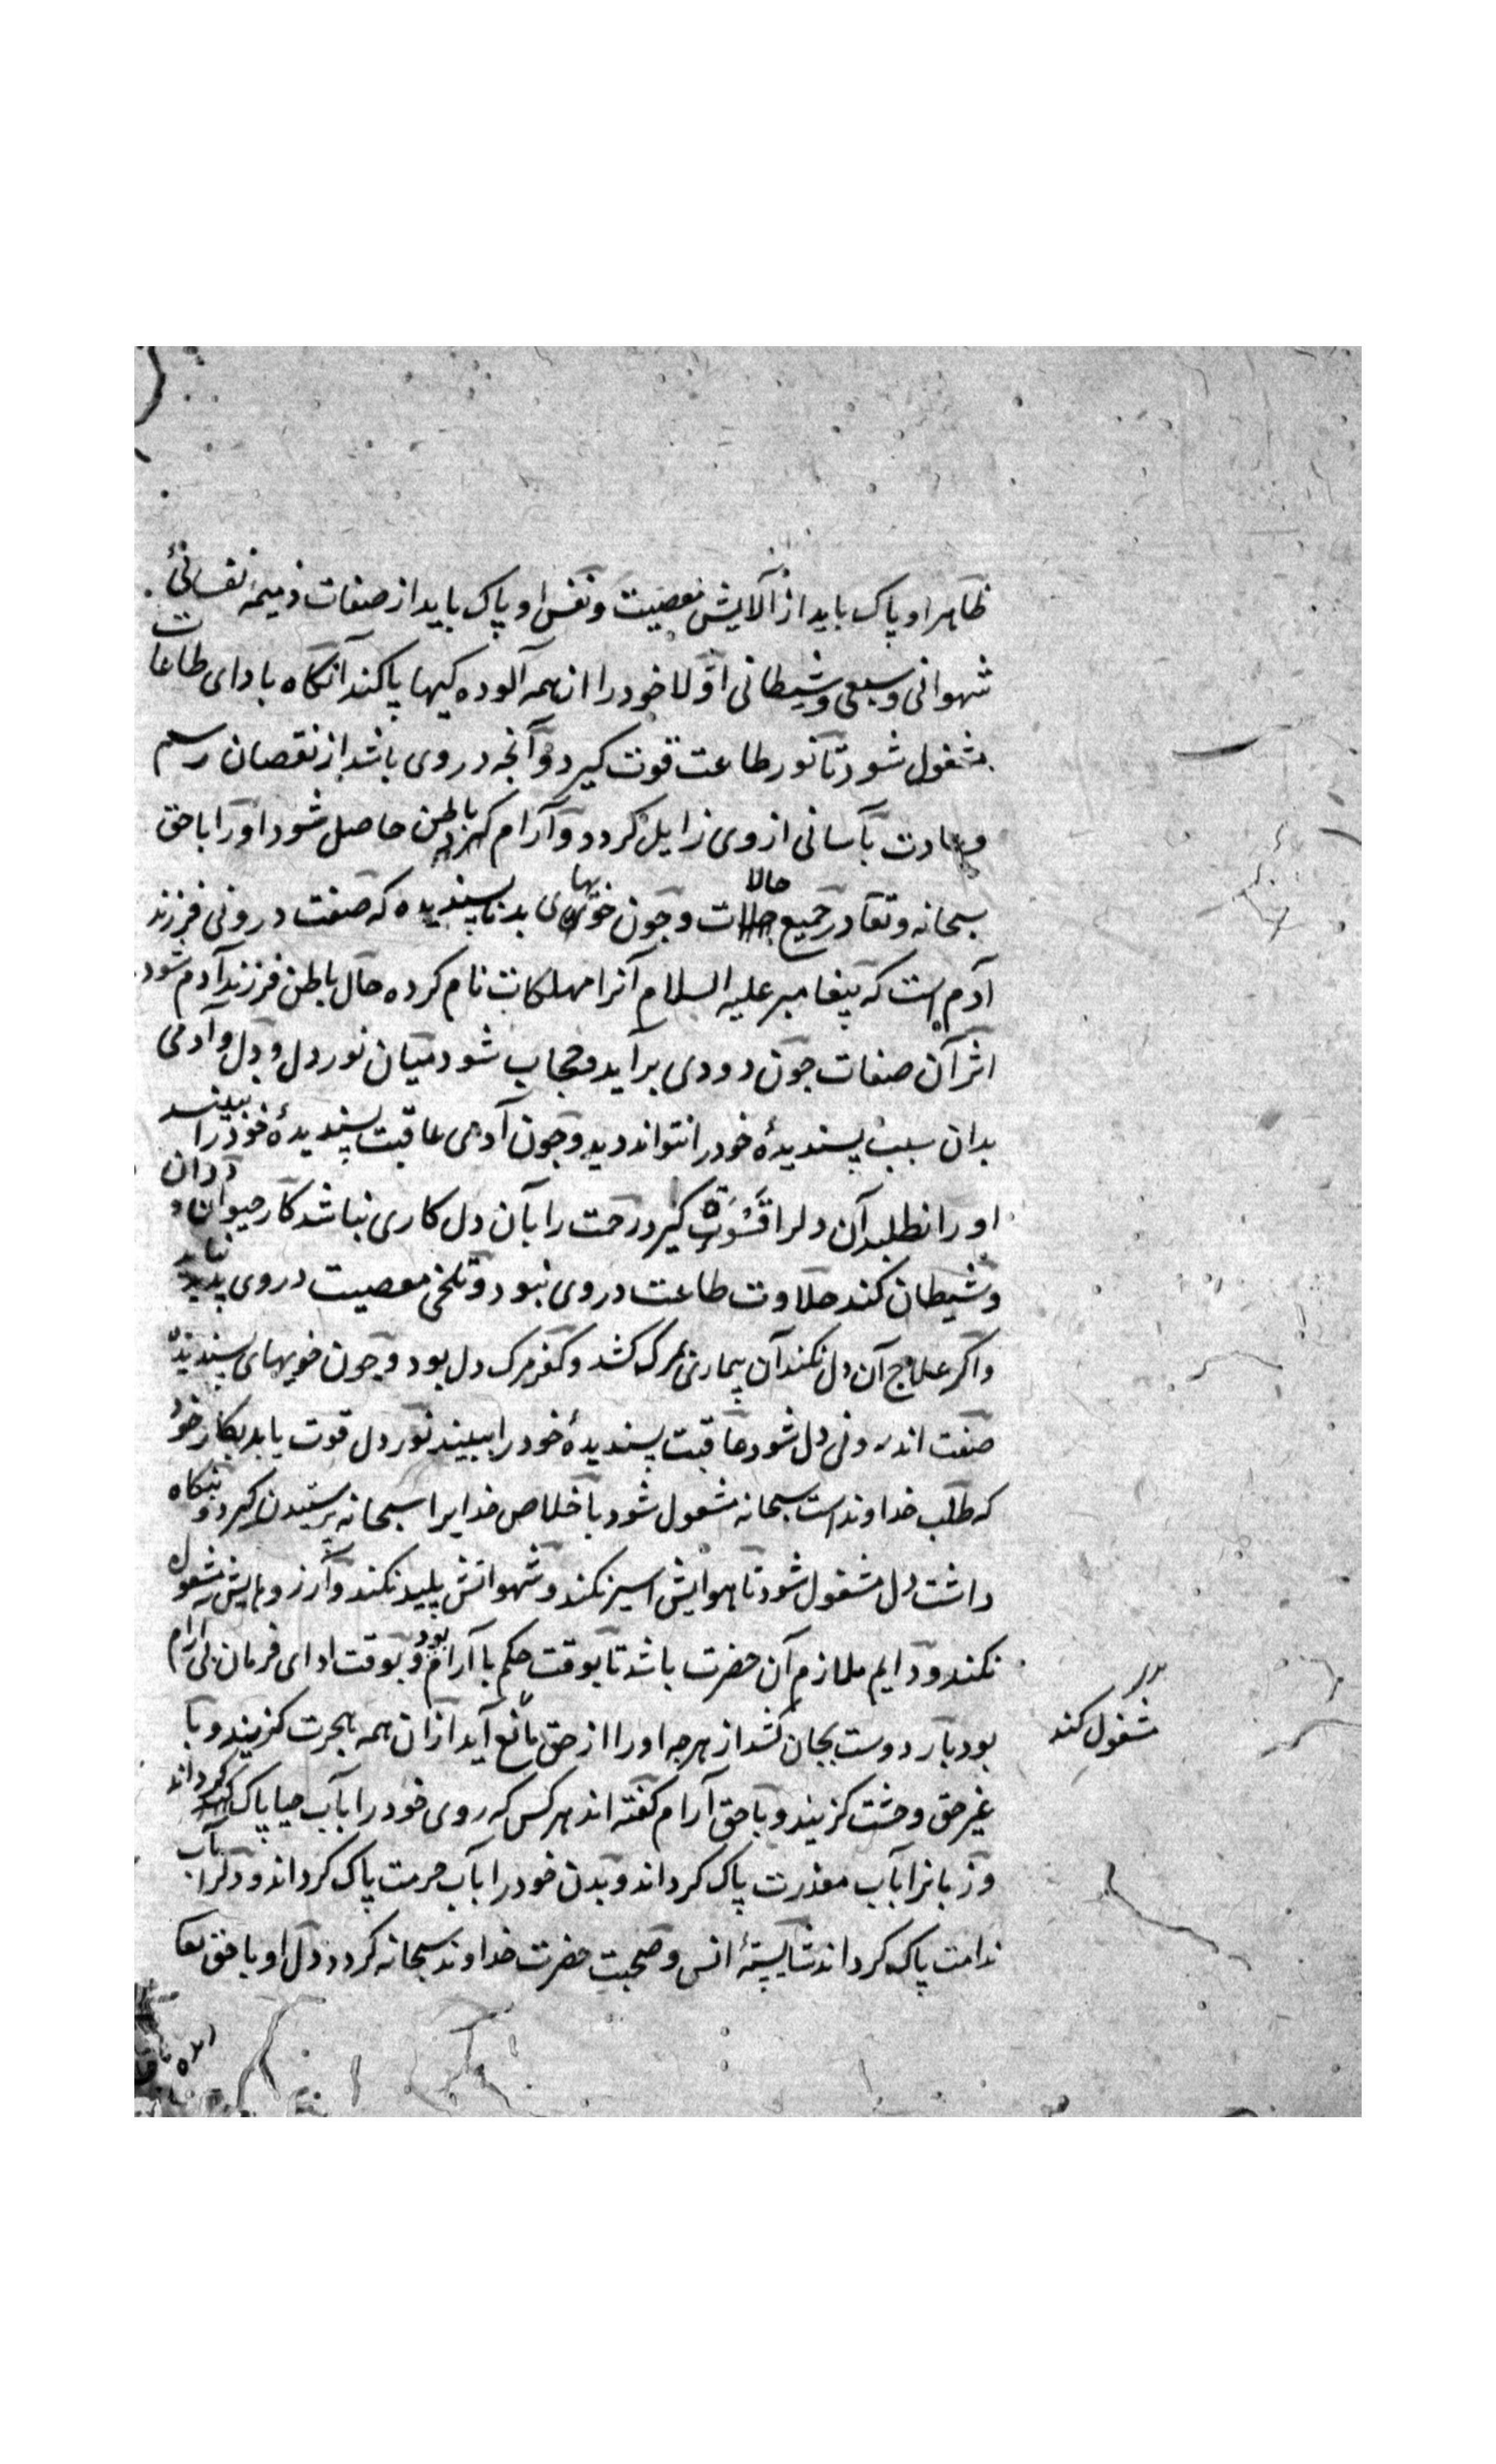 ظاهر او پاک باید از آلایش معصیت و نفس او پاک باید از صفات ذمیمه نفسانئ
شهوانی و سبعی و شیطانی اولا خود را ازان همه آلوده کیها پاکند آنگاه بادای طاعات
مشغول شود تا نور طاعت قوت کیرد و آنجه در وی باشد از نقصان رسم
و عادت بآسانی از وی زایل کردد و آرام باطن حاصل شود او را با حق
سبحانه و تعا در جمیع حالات و جون خویهای بد ناپسندیده که صفت درونی فرزند
آدم است که پیغامبر علیه السلام آنرا مهلکات نام کرده حال باطن فرزند آدم شود
اثر آن صفات جون دودی برآید و حجاب شود میان نور دل و دل و آدمی
بدان سبب پسندیدهٔ خود را نتواند دید و جون آدمی عاقبت پسندیدهٔ خود را نبیند
او را نطلبد آن دلرا قسوة کیرد رحمت را بآن دل کاری نباشد کار حیوان و ددان
و شیطان کند حلاوت طاعت در وی نبود و تلخی معصیت در وی پدید نیاید
و اکر علاج آن دل نکند آن بیماری بمرک کشد و کفر مرک دل بود و جون خویهای پسندیده
صفت اندرونی دل شود عاقبت پسندیدهٔ خود را ببیند نور دل قوت یابد بکار خود
که طلب خداوند است سبحانه مشغول شود باخلاص خدایرا سبحانه پرستیدن کیرد و بنکاه
داشت دل مشغول شود تا هوایش اسیر نکند و شهواتش پلید نکند و آرزوهایش مشغول
نکند و دایم ملازم آن حضرت باشد تا بوقت حکم با آرام بود و بوقت ادای فرمان بی آرام
بود بار دوست بجان کشد از هرجه او را از حق مانع آید ازان همه هجرت کزیند و با
غیر حق وحشت کزیند و با حق آرام کفته اند هر کس که روی خود را بآب حیا پاک کرداند
و زبانرا بآب معذرت پاک کرداند و بدن خود را بآب حرمت پاک کرداند و دلرا بآب
ندامت پاک کرداند شایستهٔ انس و صحبت حضرت خداوند سبحانه کردد دل او با حق تعا
مشغول کند